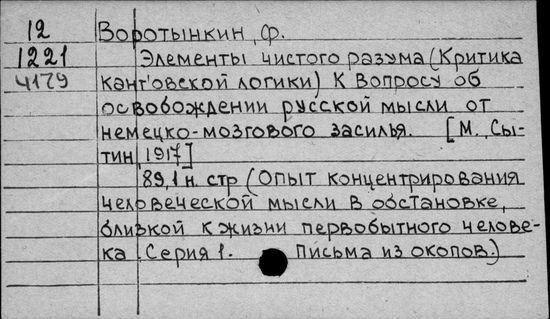 12 Воротынкин, Ф.
1221 Элементы чистого разума (Критика
4179 кант'овской логики) К вопросу об
освобождении русской мысли от
немецко-мозгового засилья. [М., Сы-
тин, 1917]
89, 1 н. стр (Опыт концентрирования
человеческой мысли в обстановке,
близкой к жизни первобытного челове-
ка. Серия 1. Письма из окопов.)